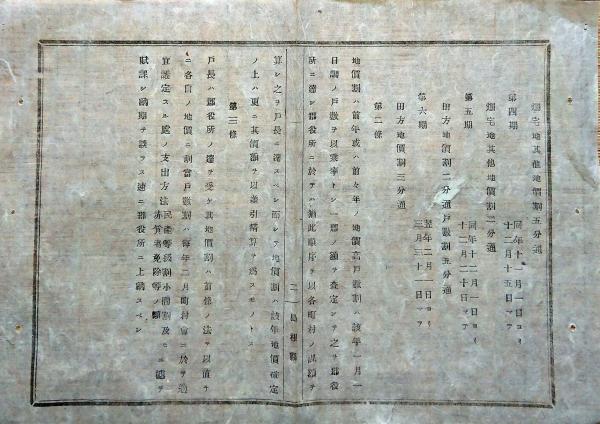 畑宅地其他地價割五分通
第四期 同年十一月一日ヨリ
十二月十五日マデ
畑宅地其他地價割二分通
第五期 同年十二月一日ヨリ
十二月二十日マデ
田方地價割二分通戸數割五分通
第六期 翌年二月一日ヨリ
三月三十一日マデ
田方地價割三分通
第二條
地價割ハ前年或ハ前々年ノ地價高戸數割ハ該年一月一
日調ノ戸數ヲ以テ乗率トシ一郡ノ額ヲ査定シテ之ヲ郡役
所ニ達シ郡役所ニ於テハ猶此順序ヲ以各町村ノ課額ヲ
二 島根縣
算シ之ヲ戸長ニ達スベシ而シテ地價割ハ該年地價確定
ノ上ハ更ニ其價額ヲ以差引精算ヲ為スモノトス
第三條
戸長ハ郡役所ノ達ヲ受ケ其地價割ハ前條ノ法ヲ以直チ
ニ各自ノ地價ニ割當戸數割ハ毎年二月町村會ニ於テ適
宜議定スル處ノ支出方法民産等級割小間割及
赤貧者免除等ノ類ニ據テ
賦課シ納期ヲ誤ラス速ニ郡役所ニ上納スベシ